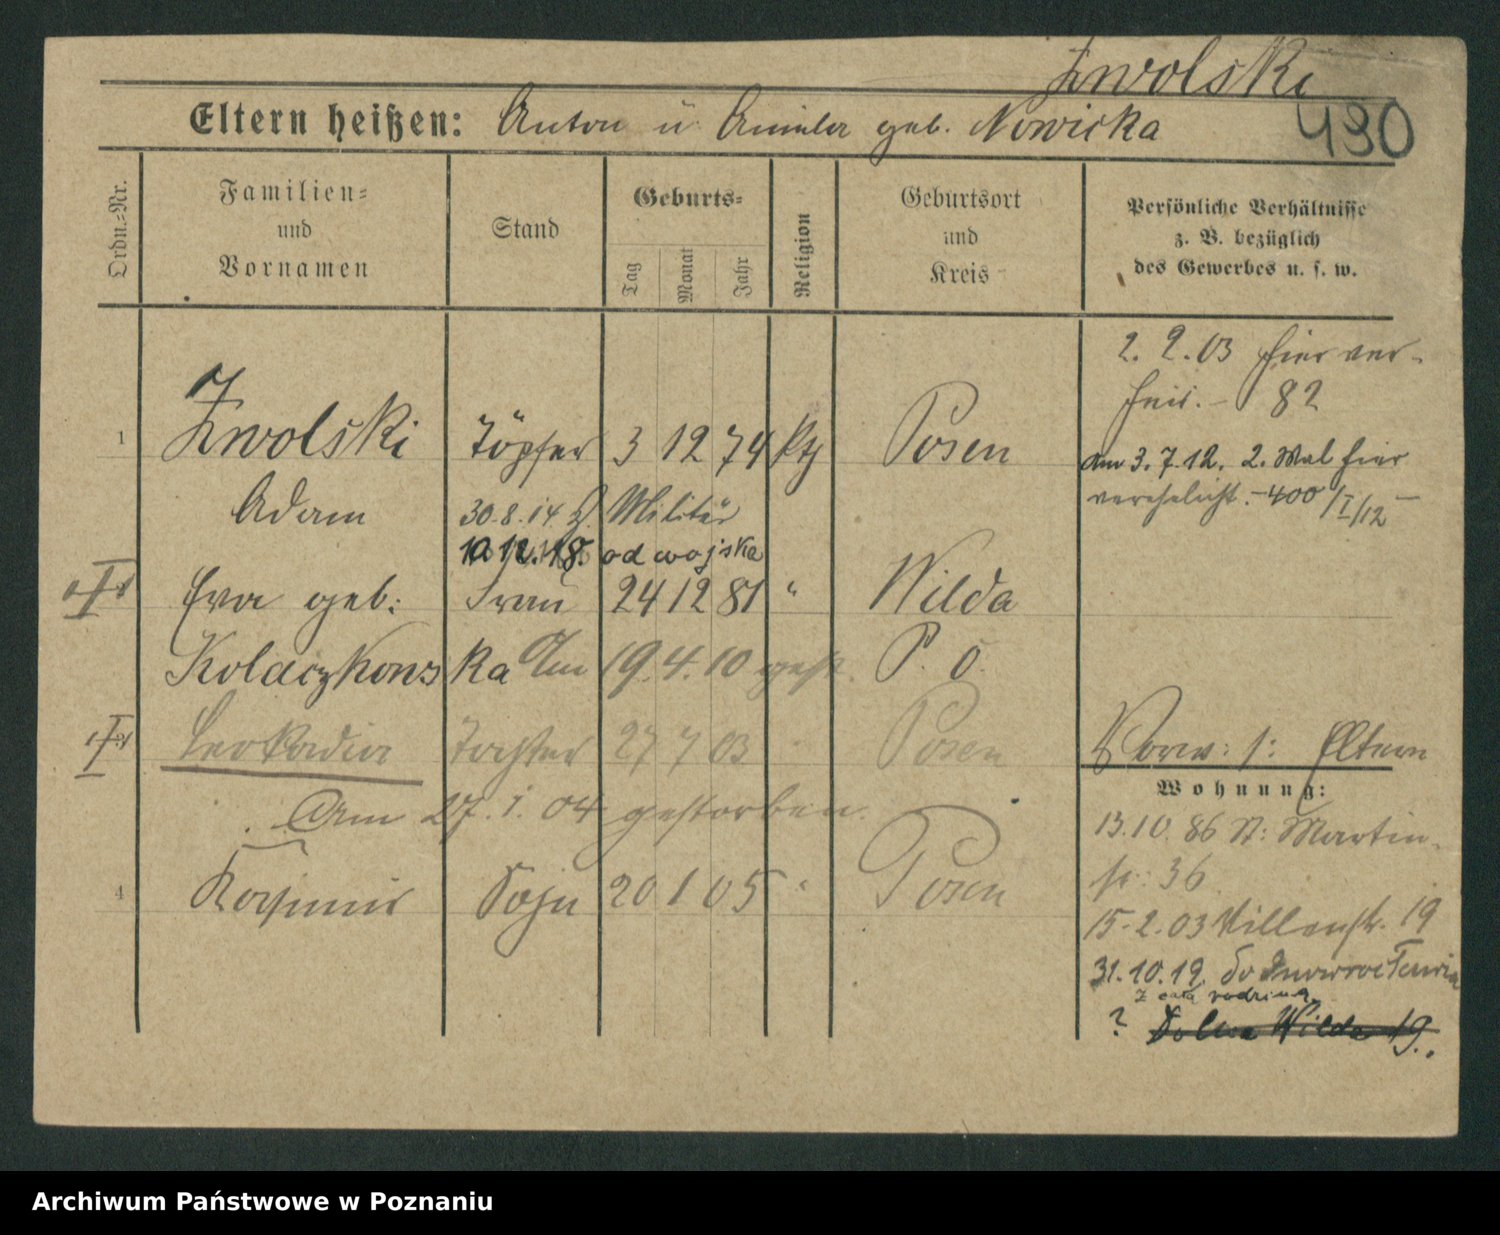 Zwolski
Eltern heißen: Anton u. geb. Nowicka
490
Ordn.=Nr.
Familien=
und
Vornamen
Stand
Geburts=
Tag
Monat
Jahr
Religion
Geburtsort
und
Kreis
Persönliche Verhältnisse
z. B. bezüglich
des Gewerbes u. s. w.
2. 2. 03 hier ver-
82
1 Zwolski Töpfer 3 12 74 kth Posen
am 3. 7. 12. 2. Mal hier
verehelicht. - 400/I/12 -
Adam 30.8.14 z. Militär
12. 18. od wojska
Eva geb: Frau 24 12 81 " Wilda
Kolaczkowska Am 19. 4. 10 gest. P. O.
Leokadia Tochter 27 7 03 Posen
Vorw: s: Eltern
Wohnung:
Am 27. 1. 04 gestorben.
13.10. 86 St: Martin-
str: 36
4 Kasimir Sohn 20 1 05 " Posen
15. 2. 03 Villenstr. 19
31. 10. 19. do Inowrocławia
z całą rodziną
? Dolna Wilda 19.
Archiwum Państwowe w Poznaniu